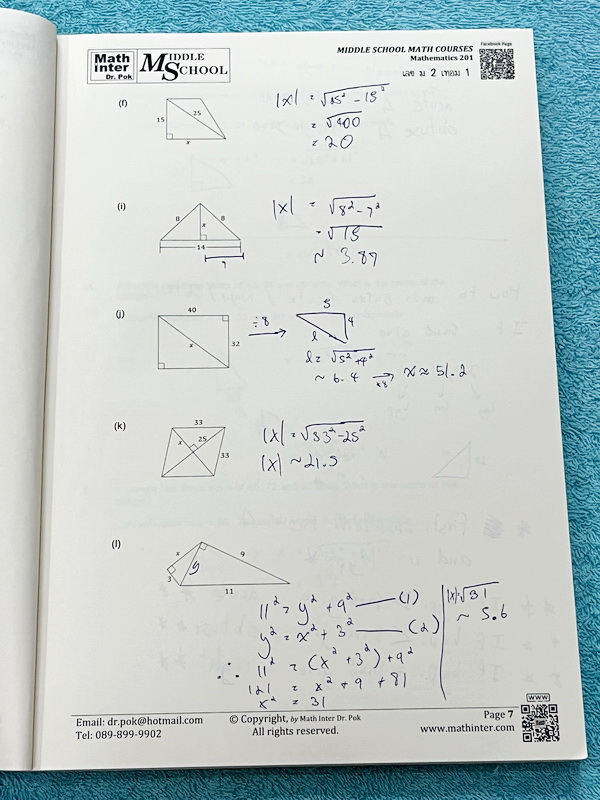 Math
Inter
Dr. Pok
MIDDLE
SCHOOL
MIDDLE SCHOOL MATH COURSES
Mathematics 201
Facebook Page
เลข ม 2 เทอม 1
(f)
15
25
x
|x| = √25² - 15²
= √400
= 20
(i)
8
8
x
14
7
|x| = √8² - 7²
= √15
~ 3.87
(j)
40
x
32
÷8
5
4
l
l = √5² + 4²
~ 6.4 →×8 x ≈ 51.2
(k)
33
x
25
33
|x| = √33² - 25²
|x| ~ 21.5
(l)
x
9
y
3
11
11² = y² + 9² — (1)
y² = x² + 3² — (2)
∴ 11² = (x² + 3²) + 9²
121 = x² + 9 + 81
x² = 31
|x| = √31
~ 5.6
WWW
Email: dr.pok@hotmail.com
Tel: 089-899-9902
© Copyright, by Math Inter Dr. Pok
All rights reserved.
Page 7
www.mathinter.com